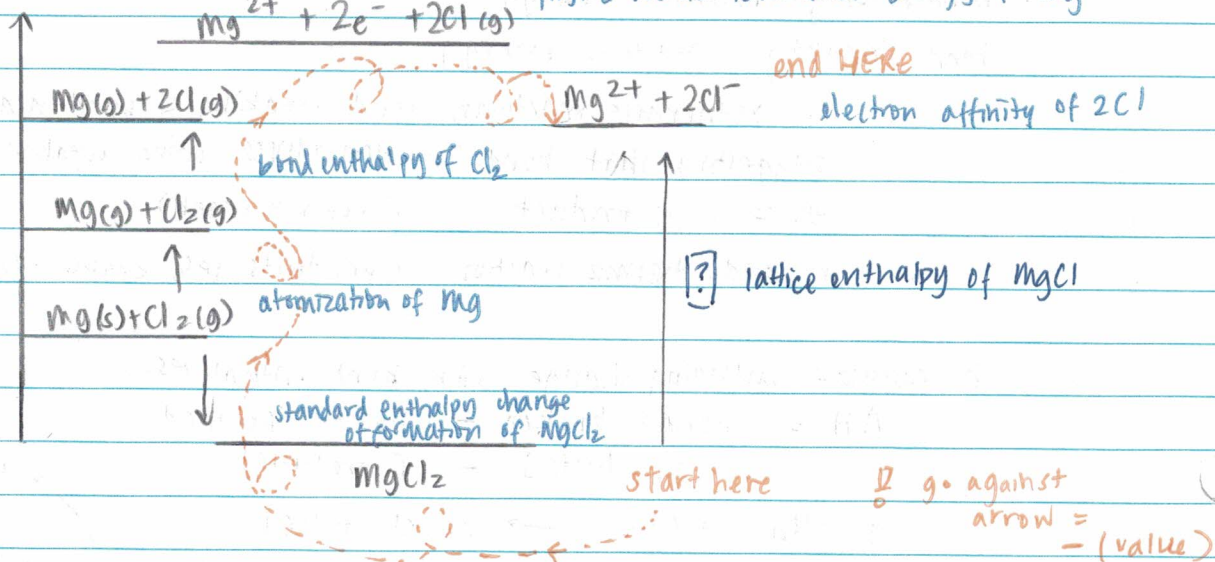 Mg²⁺ + 2e⁻ + 2Cl (g)
end HERE
Mg(g) + 2Cl(g)
Mg²⁺ + 2Cl⁻
electron affinity of 2Cl
bond enthalpy of Cl₂
Mg(g) + Cl₂(g)
? lattice enthalpy of MgCl
atomization of Mg
Mg(s)+Cl₂(g)
standard enthalpy change
of formation of MgCl₂
MgCl₂
start here
!? go against
arrow =
- (value)